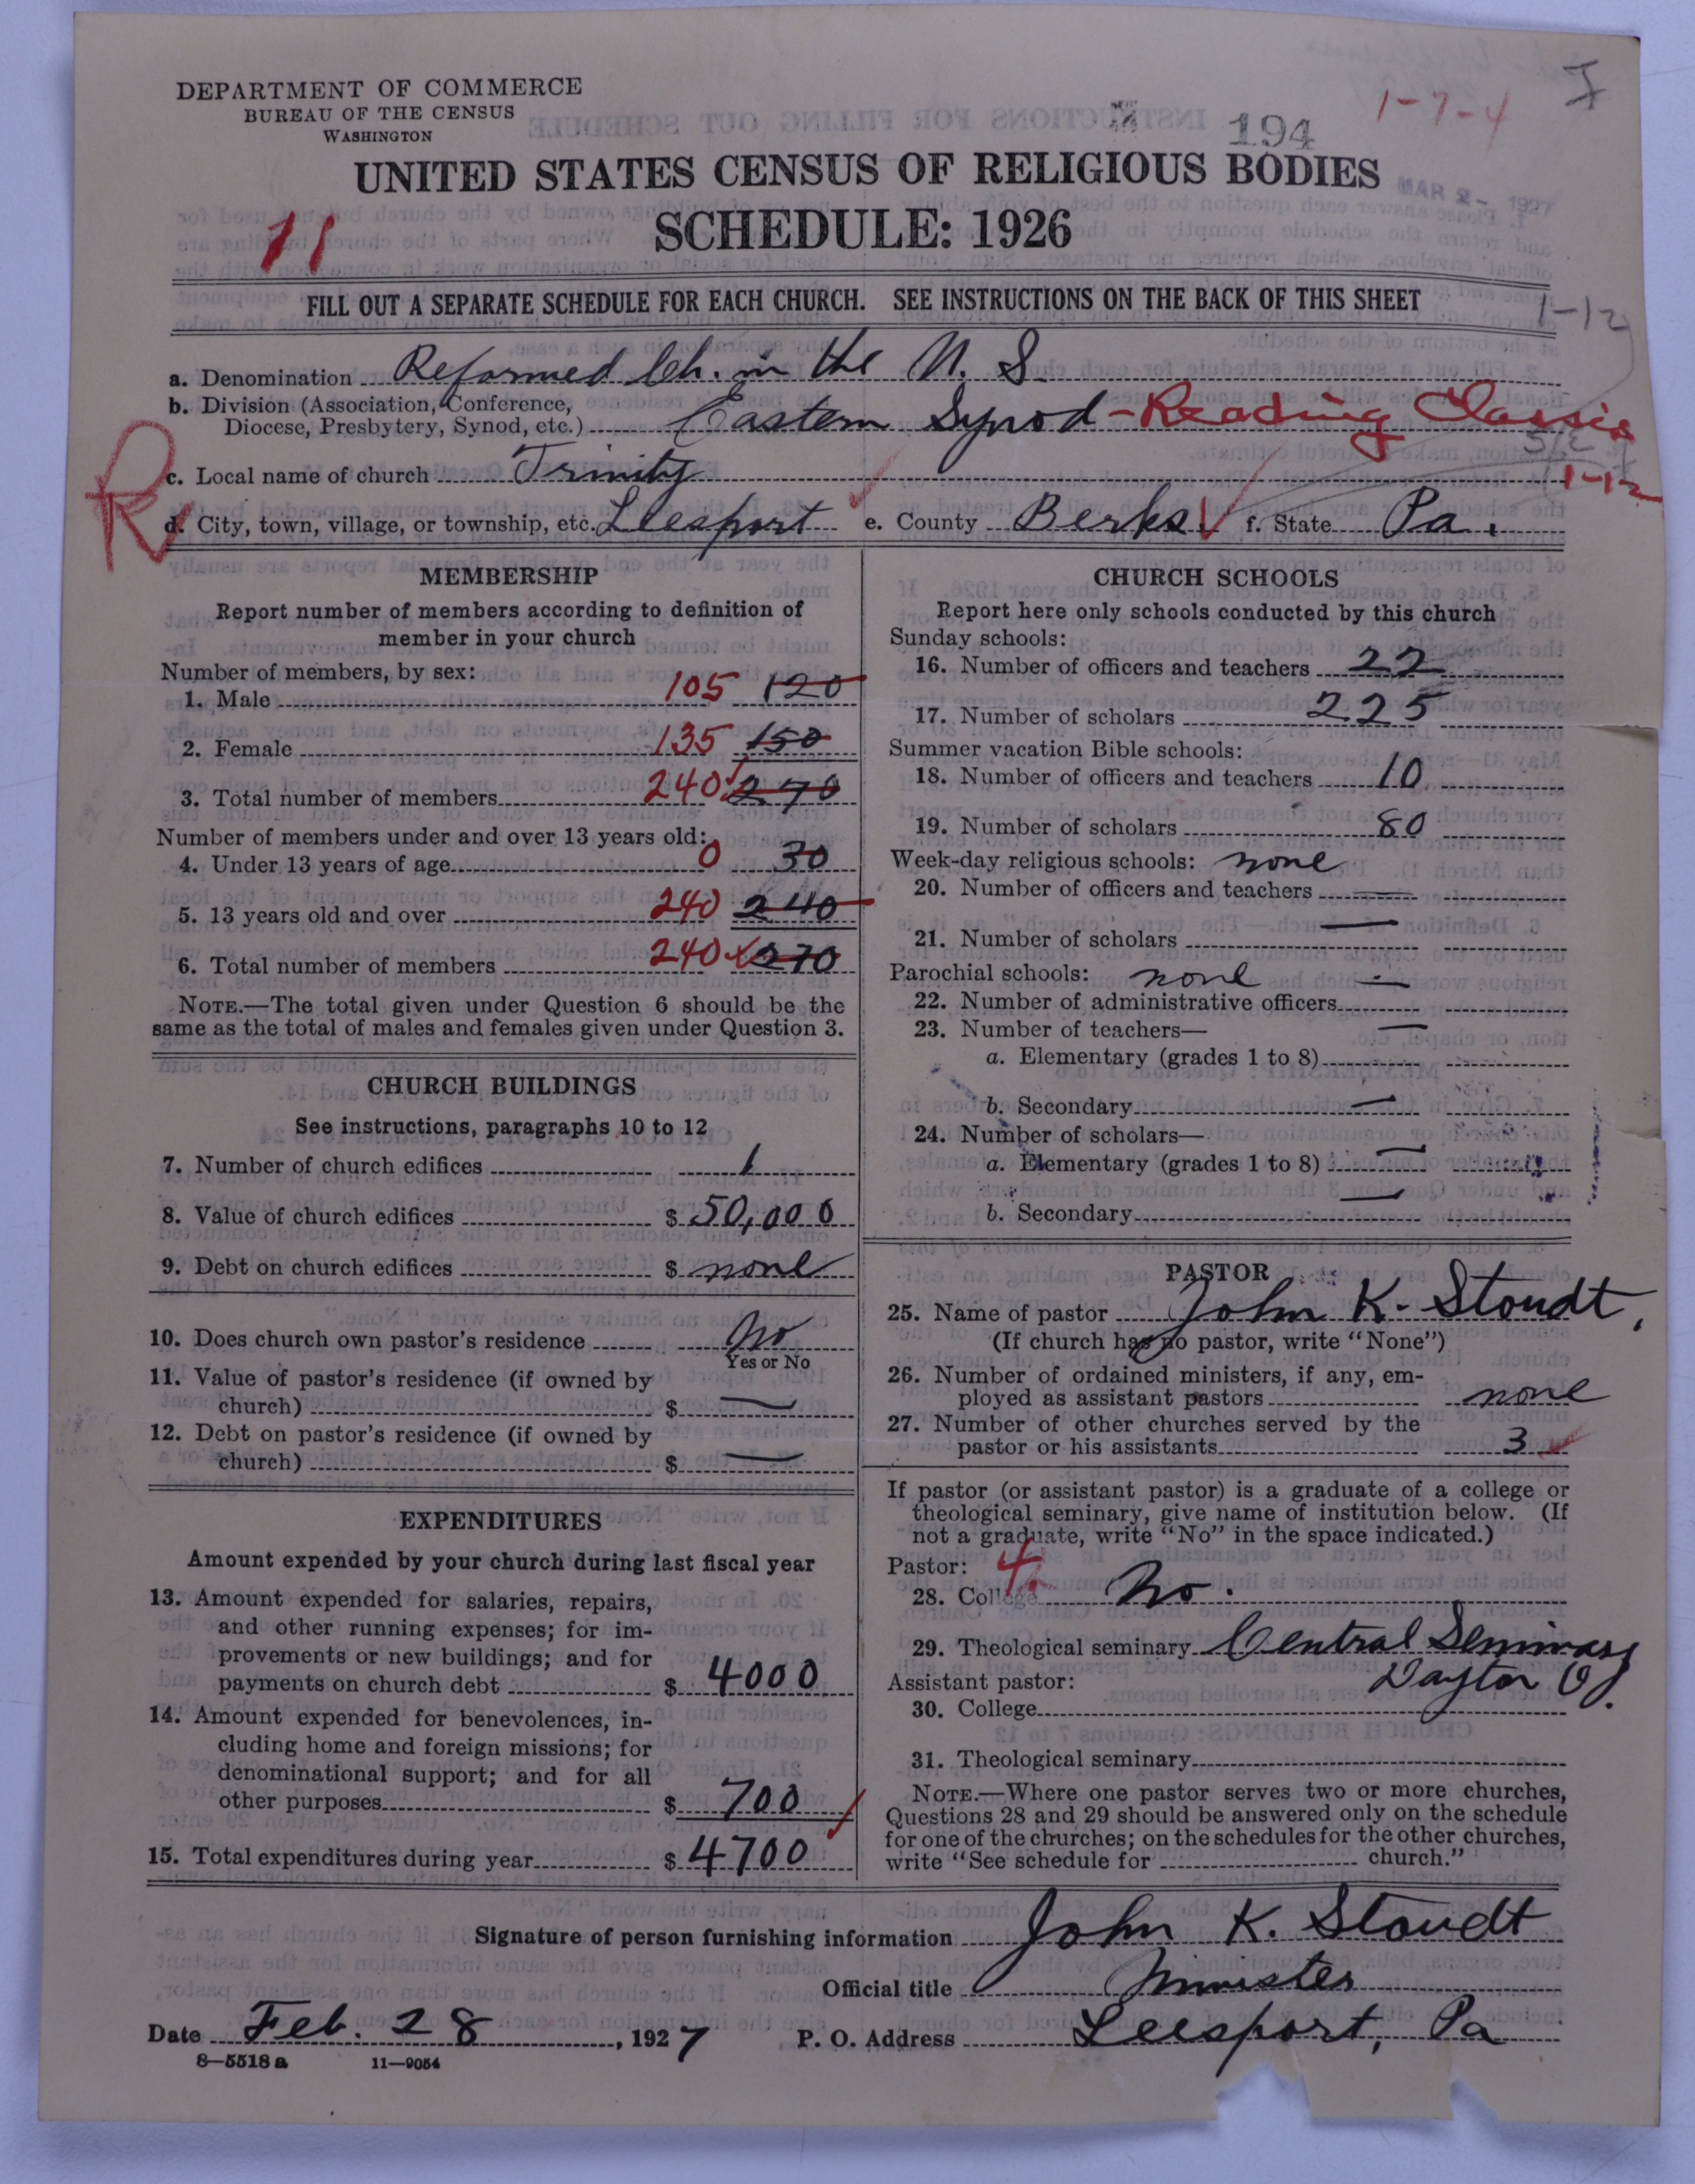 DEPARTMENT OF COMMERCE
BUREAU OF THE CENSUS
WASHINGTON
194
1-7-4
UNITED STATES CENSUS OF RELIGIOUS BODIES
MAR 2 - 1927
SCHEDULE: 1926
11
FILL OUT A SEPARATE SCHEDULE FOR EACH CHURCH. SEE INSTRUCTIONS ON THE BACK OF THIS SHEET
1-12
a. Denomination Reformed Ch. in the U. S.
b. Division (Association, Conference,
Diocese, Presbytery, Synod, etc.) Eastern Synod - Reading Classis
c. Local name of church Trinity
1-12
R
d. City, town, village, or township, etc. Leesport e. County Berks f. State Pa.
MEMBERSHIP
Report number of members according to definition of
member in your church
Number of members, by sex:
1. Male 105 120
2. Female 135 150
3. Total number of members 240 270
Number of members under and over 13 years old:
4. Under 13 years of age 0 30
5. 13 years old and over 240 240
6. Total number of members 240 270
NOTE.—The total given under Question 6 should be the
same as the total of males and females given under Question 3.
CHURCH BUILDINGS
See instructions, paragraphs 10 to 12
7. Number of church edifices 1
8. Value of church edifices $ 50,000
9. Debt on church edifices $ none
10. Does church own pastor's residence No
Yes or No
11. Value of pastor's residence (if owned by
church) $ —
12. Debt on pastor's residence (if owned by
church) $ —
EXPENDITURES
Amount expended by your church during last fiscal year
13. Amount expended for salaries, repairs,
and other running expenses; for im-
provements or new buildings; and for
payments on church debt $ 4000
14. Amount expended for benevolences, in-
cluding home and foreign missions; for
denominational support; and for all
other purposes $ 700
15. Total expenditures during year $ 4700
CHURCH SCHOOLS
Report here only schools conducted by this church
Sunday schools:
16. Number of officers and teachers 22
17. Number of scholars 225
Summer vacation Bible schools:
18. Number of officers and teachers 10
19. Number of scholars 80
Week-day religious schools: none
20. Number of officers and teachers —
21. Number of scholars —
Parochial schools: none
22. Number of administrative officers —
23. Number of teachers—
a. Elementary (grades 1 to 8) —
b. Secondary —
24. Number of scholars—
a. Elementary (grades 1 to 8) —
b. Secondary —
PASTOR
25. Name of pastor John K. Stoudt,
(If church has no pastor, write "None")
26. Number of ordained ministers, if any, em-
ployed as assistant pastors none
27. Number of other churches served by the
pastor or his assistants 3
If pastor (or assistant pastor) is a graduate of a college or
theological seminary, give name of institution below. (If
not a graduate, write "No" in the space indicated.)
Pastor:
28. College No.
29. Theological seminary Central Seminary
Assistant pastor: Dayton O.
30. College
31. Theological seminary
NOTE.—Where one pastor serves two or more churches,
Questions 28 and 29 should be answered only on the schedule
for one of the churches; on the schedules for the other churches,
write "See schedule for church."
Signature of person furnishing information John K. Stoudt
Official title Minister
Date Feb. 28, 1927 P. O. Address Leesport, Pa
8—5518 a 11—9054